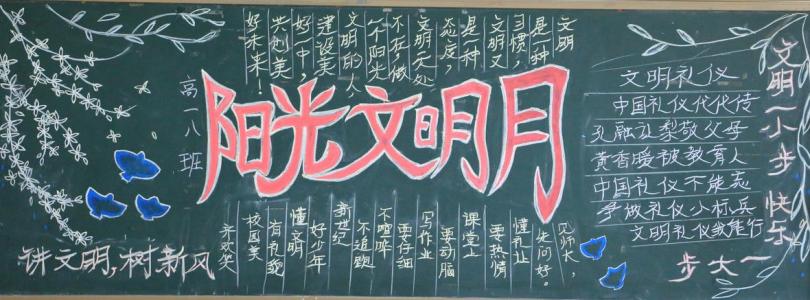 文明
是一种
习惯，
文明又
是一种
态度
文明无处
不在，做
个阳光
文明的人
建设美
好中，
共创美
好未来！
高一八班
阳光文明月
文明礼仪
中国礼仪代代传
孔融让梨敬父母
黄香暖被教育人
中国礼仪不能忘
争做礼仪小标兵
文明礼仪我能行
文明一小步 快乐
一大步
见师长，
先问好。
懂礼让
要热情
课堂上
要动脑
写作业
要仔细
不喧哗
不追跑
新世纪
好少年
懂文明
有礼貌
校园美
讲文明，树新风